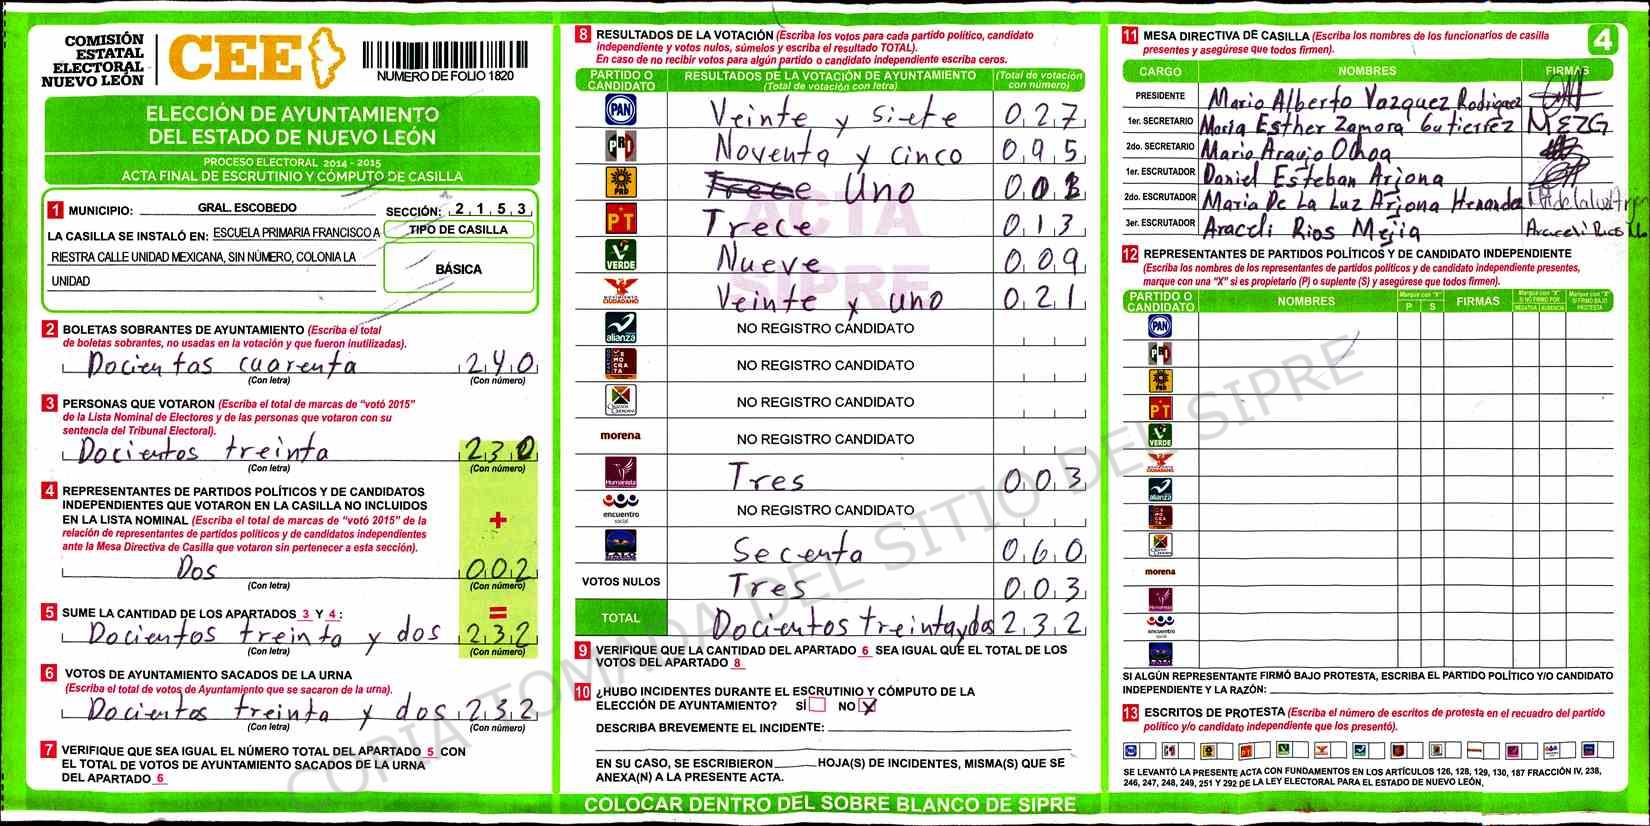 COMISIÓN
ESTATAL
ELECTORAL
NUEVO LEÓN
CEE
NUMERO DE FOLIO 1820
ELECCIÓN DE AYUNTAMIENTO
DEL ESTADO DE NUEVO LEÓN
PROCESO ELECTORAL 2014 - 2015
ACTA FINAL DE ESCRUTINIO Y CÓMPUTO DE CASILLA
1 MUNICIPIO: GRAL. ESCOBEDO SECCIÓN: 2 1 5 3
LA CASILLA SE INSTALÓ EN: ESCUELA PRIMARIA FRANCISCO A
RIESTRA CALLE UNIDAD MEXICANA, SIN NÚMERO, COLONIA LA
UNIDAD
TIPO DE CASILLA
BÁSICA
2 BOLETAS SOBRANTES DE AYUNTAMIENTO (Escriba el total
de boletas sobrantes, no usadas en la votación y que fueron inutilizadas).
Docientas cuarenta 2 4 0
(Con letra) (Con número)
3 PERSONAS QUE VOTARON (Escriba el total de marcas de "votó 2015"
de la Lista Nominal de Electores y de las personas que votaron con su
sentencia del Tribunal Electoral).
Docientos treinta 2 3 0
(Con letra) (Con número)
4 REPRESENTANTES DE PARTIDOS POLÍTICOS Y DE CANDIDATOS
INDEPENDIENTES QUE VOTARON EN LA CASILLA NO INCLUIDOS
EN LA LISTA NOMINAL (Escriba el total de marcas de "votó 2015" de la
relación de representantes de partidos políticos y de candidatos independientes
ante la Mesa Directiva de Casilla que votaron sin pertenecer a esta sección).
+
Dos 0 0 2
(Con letra) (Con número)
5 SUME LA CANTIDAD DE LOS APARTADOS 3 Y 4 : =
Docientos treinta y dos 2 3 2
(Con letra) (Con número)
6 VOTOS DE AYUNTAMIENTO SACADOS DE LA URNA
(Escriba el total de votos de Ayuntamiento que se sacaron de la urna).
Docientos treinta y dos 2 3 2
(Con letra) (Con número)
7 VERIFIQUE QUE SEA IGUAL EL NÚMERO TOTAL DEL APARTADO 5 CON
EL TOTAL DE VOTOS DE AYUNTAMIENTO SACADOS DE LA URNA
DEL APARTADO 6
8 RESULTADOS DE LA VOTACIÓN (Escriba los votos para cada partido político, candidato
independiente y votos nulos, súmelos y escriba el resultado TOTAL).
En caso de no recibir votos para algún partido o candidato independiente escriba ceros.
PARTIDO O CANDIDATO RESULTADOS DE LA VOTACIÓN DE AYUNTAMIENTO (Total de votación con letra) (Total de votación con número)
PAN Veinte y siete 0 2 7
PRI Noventa y cinco 0 9 5
PRD Trece Uno 0 0
PT Trece 0 1 3
VERDE Nueve 0 0 9
MOVIMIENTO CIUDADANO Veinte y uno 0 2 1
alianza NO REGISTRO CANDIDATO
DEMOCRATA NO REGISTRO CANDIDATO
NO REGISTRO CANDIDATO
morena NO REGISTRO CANDIDATO
Humanista Tres 0 0 3
encuentro social NO REGISTRO CANDIDATO
Secenta 0 6 0
VOTOS NULOS Tres 0 0 3
TOTAL Docientos treinta y dos 2 3 2
ACTA
SIPRE
9 VERIFIQUE QUE LA CANTIDAD DEL APARTADO 6 SEA IGUAL QUE EL TOTAL DE LOS
VOTOS DEL APARTADO 8
10 ¿HUBO INCIDENTES DURANTE EL ESCRUTINIO Y CÓMPUTO DE LA
ELECCIÓN DE AYUNTAMIENTO? SÍ NO X
DESCRIBA BREVEMENTE EL INCIDENTE:
EN SU CASO, SE ESCRIBIERON HOJA(S) DE INCIDENTES, MISMA(S) QUE SE
ANEXA(N) A LA PRESENTE ACTA.
COLOCAR DENTRO DEL SOBRE BLANCO DE SIPRE
11 MESA DIRECTIVA DE CASILLA (Escriba los nombres de los funcionarios de casilla
presentes y asegúrese que todos firmen).
4
CARGO NOMBRES FIRMAS
PRESIDENTE Mario Alberto Vazquez Rodriguez
1er. SECRETARIO Maria Esther Zamora Gutierrez MEZG
2do. SECRETARIO Mario Araujo Ochoa
1er. ESCRUTADOR Daniel Esteban Arjona
2do. ESCRUTADOR Maria De La Luz Arjona Hernandez
3er. ESCRUTADOR Araceli Rios Mejia Araceli Rios
12 REPRESENTANTES DE PARTIDOS POLÍTICOS Y DE CANDIDATO INDEPENDIENTE
(Escriba los nombres de los representantes de partidos políticos y de candidato independiente presentes,
marque con una "X" si es propietario (P) o suplente (S) y asegúrese que todos firmen).
PARTIDO O CANDIDATO NOMBRES Marque con "X" P S FIRMAS Marque con "X" SI NO FIRMÓ POR NEGATIVA AUSENCIA Marque con "X" SI FIRMÓ BAJO PROTESTA
PAN
PRI
PRD
PT
VERDE
CIUDADANO
alianza
DEMOCRATA
morena
Humanista
encuentro social
SI ALGÚN REPRESENTANTE FIRMÓ BAJO PROTESTA, ESCRIBA EL PARTIDO POLÍTICO Y/O CANDIDATO
INDEPENDIENTE Y LA RAZÓN:
13 ESCRITOS DE PROTESTA (Escriba el número de escritos de protesta en el recuadro del partido
político y/o candidato independiente que los presentó).
SE LEVANTÓ LA PRESENTE ACTA CON FUNDAMENTOS EN LOS ARTÍCULOS 126, 128, 129, 130, 187 FRACCIÓN IV, 238,
246, 247, 248, 249, 251 Y 292 DE LA LEY ELECTORAL PARA EL ESTADO DE NUEVO LEÓN,
COPIA TOMADA DEL SITIO DEL SIPRE